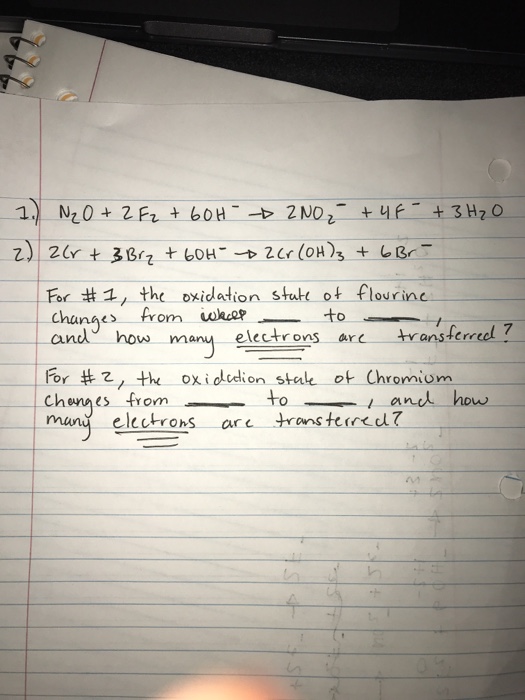 1.) N₂O + 2F₂ + 6OH⁻ → 2NO₂⁻ + 4F⁻ + 3H₂O
2.) 2Cr + 3Br₂ + 6OH⁻ → 2Cr(OH)₃ + 6Br⁻
For #1, the oxidation state of flourine
changes from ___ to ___,
and how many electrons are transferred?
For #2, the oxidation state of Chromium
changes from ___ to ___, and how
many electrons are transferred?